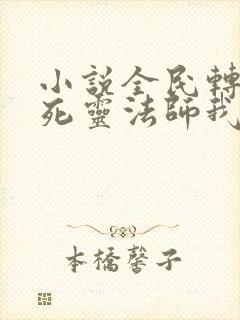 小說全民轉
死靈法師我
本橋馨子